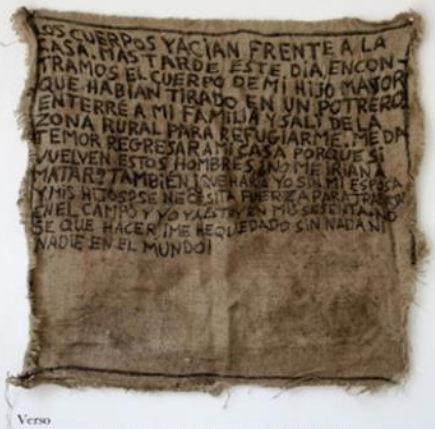 LOS CUERPOS YACIAN FRENTE A LA
CASA. MAS TARDE ESTE DIA, ENCON-
TRAMOS EL CUERPO DE MI HIJO MAYOR
QUE HABIAN TIRADO EN UN POTRERO.
ENTERRÉ A MI FAMILIA Y SALI DE LA
ZONA RURAL PARA REFUGIARME. ME DA
TEMOR REGRESAR A MI CASA PORQUE SI
VUELVEN ESTOS HOMBRES ¿NO ME IRIAN A
MATAR? TAMBIÉN ¿QUE HARIA YO SIN MI ESPOSA
Y MIS HIJOS? SE NECESITA FUERZA PARA TRABAJAR
EN EL CAMPO Y YO YA ESTOY EN MIS SESENTA. NO
SE QUE HACER ¡ME HE QUEDADO SIN NADA NI
NADIE EN EL MUNDO!
Verso